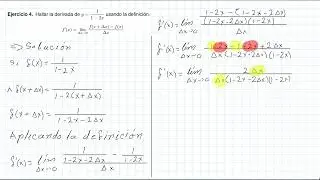 Ejercicio 4. Hallar la derivada de y = 1/(1-2x) usando la definición:
f'(x) = lim Δx→0 (f(x+Δx) - f(x))/Δx
=> Solución
Si f(x) = 1/(1-2x)
∧ f(x+Δx) = 1/(1-2(x+Δx))
∧ f(x+Δx) = 1/(1-2x-2Δx)
Aplicando la definición
f'(x) = lim Δx→0 (1/(1-2x-2Δx) - 1/(1-2x))/Δx
f'(x) = lim Δx→0 ((1-2x-(1-2x-2Δx))/((1-2x-2Δx)(1-2x)))/Δx
f'(x) = lim Δx→0 (1-2x-1+2x+2Δx)/(Δx(1-2x-2Δx)(1-2x))
f'(x) = lim Δx→0 2Δx/(Δx(1-2x-2Δx)(1-2x))